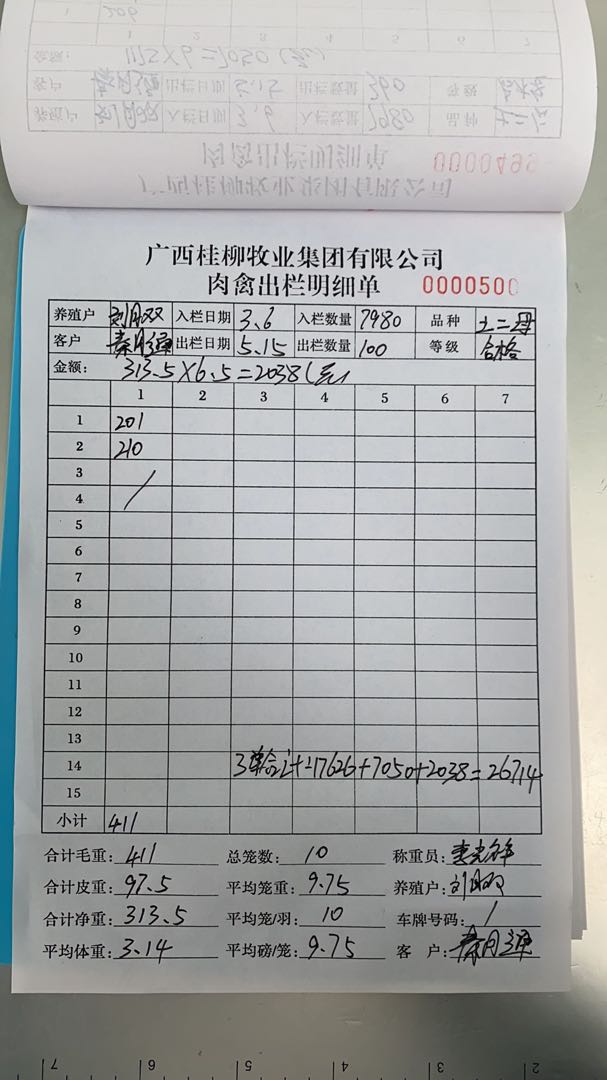 广西桂柳牧业集团有限公司
肉禽出栏明细单 0000500
养殖户 刘月双 入栏日期 3.6 入栏数量 7980 品种 土二母
客户 秦月通 出栏日期 5.15 出栏数量 100 等级 合格
金额: 313.5×6.5=2038(元)
1 2 3 4 5 6 7
1 201
2 210
3
4
5
6
7
8
9
10
11
12
13
14 3单合计:17626+7050+2038=26714
15
小计 411
合计毛重: 411 总笼数: 10 称重员:
合计皮重: 97.5 平均笼重: 9.75 养殖户: 刘月双
合计净重: 313.5 平均笼/羽: 10 车牌号码: /
平均体重: 3.14 平均磅/笼: 9.75 客 户: 秦月通
7 6 5 4 3 2